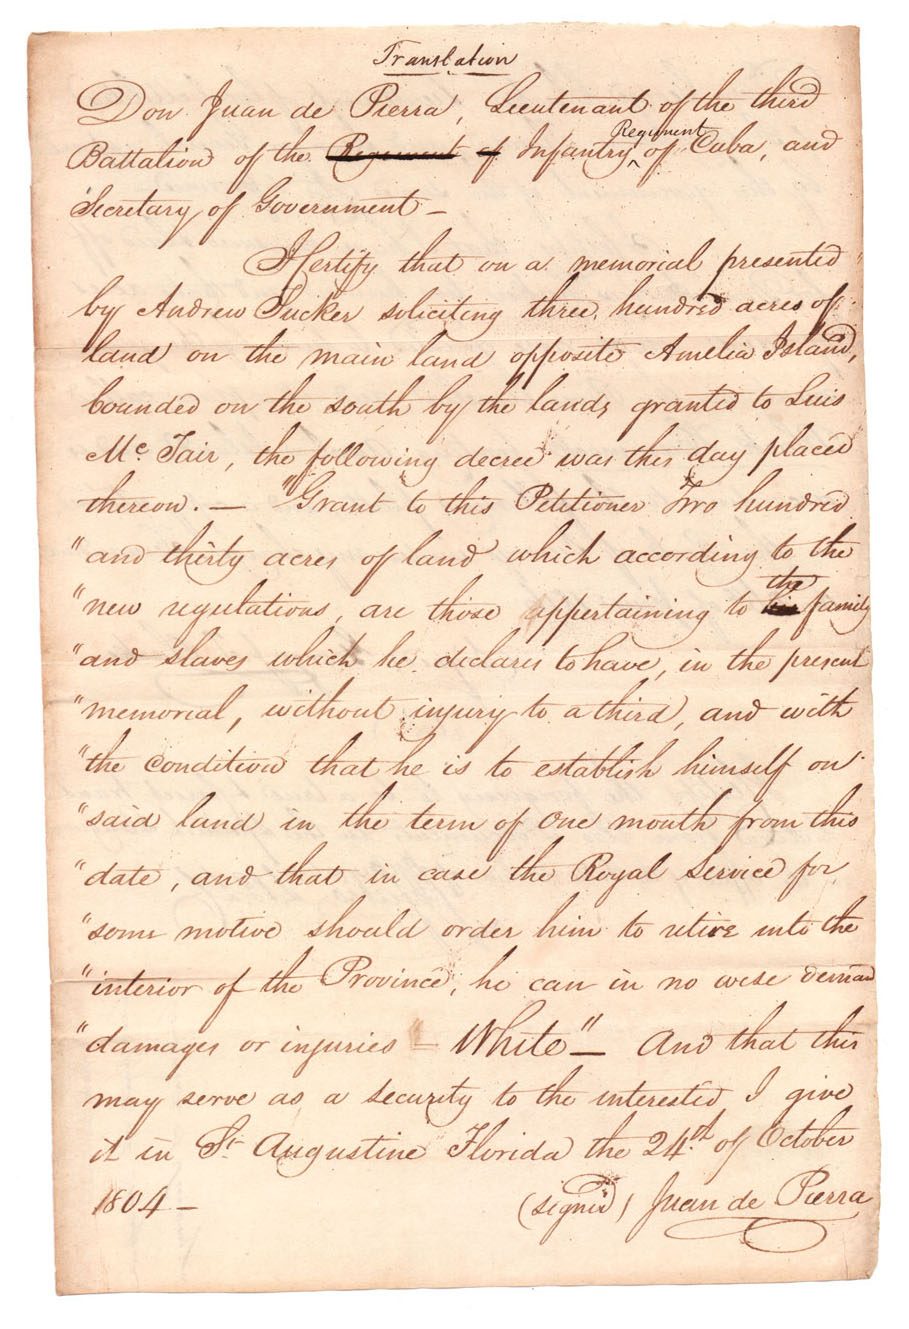 Translation
Don Juan de Pierra, Lieutenant of the third
Battalion of the Regiment of Infantry Regiment of Cuba, and
Secretary of Government —
I Certify that on a memorial presented
by Andrew Tucker soliciting three hundred acres of
land on the main land opposite Amelia Island,
bounded on the south by the lands granted to Luis
Mc. Fair, the following decree was this day placed
thereon. — "Grant to this Petitioner Two hundred
"and thirty acres of land which according to the
"new regulations, are those appertaining to the family
"and slaves which he declares to have, in the present
"memorial, without injury to a third, and with
"the condition that he is to establish himself on
"said land in the term of one month from this
"date, and that in case the Royal Service for
"some motive should order him to retire into the
"interior of the Province, he can in no wise demand
"damages or injuries — White" — And that this
may serve as a security to the interested I give
it in St. Augustine Florida the 24th of October
1804 — (signed) Juan de Pierra